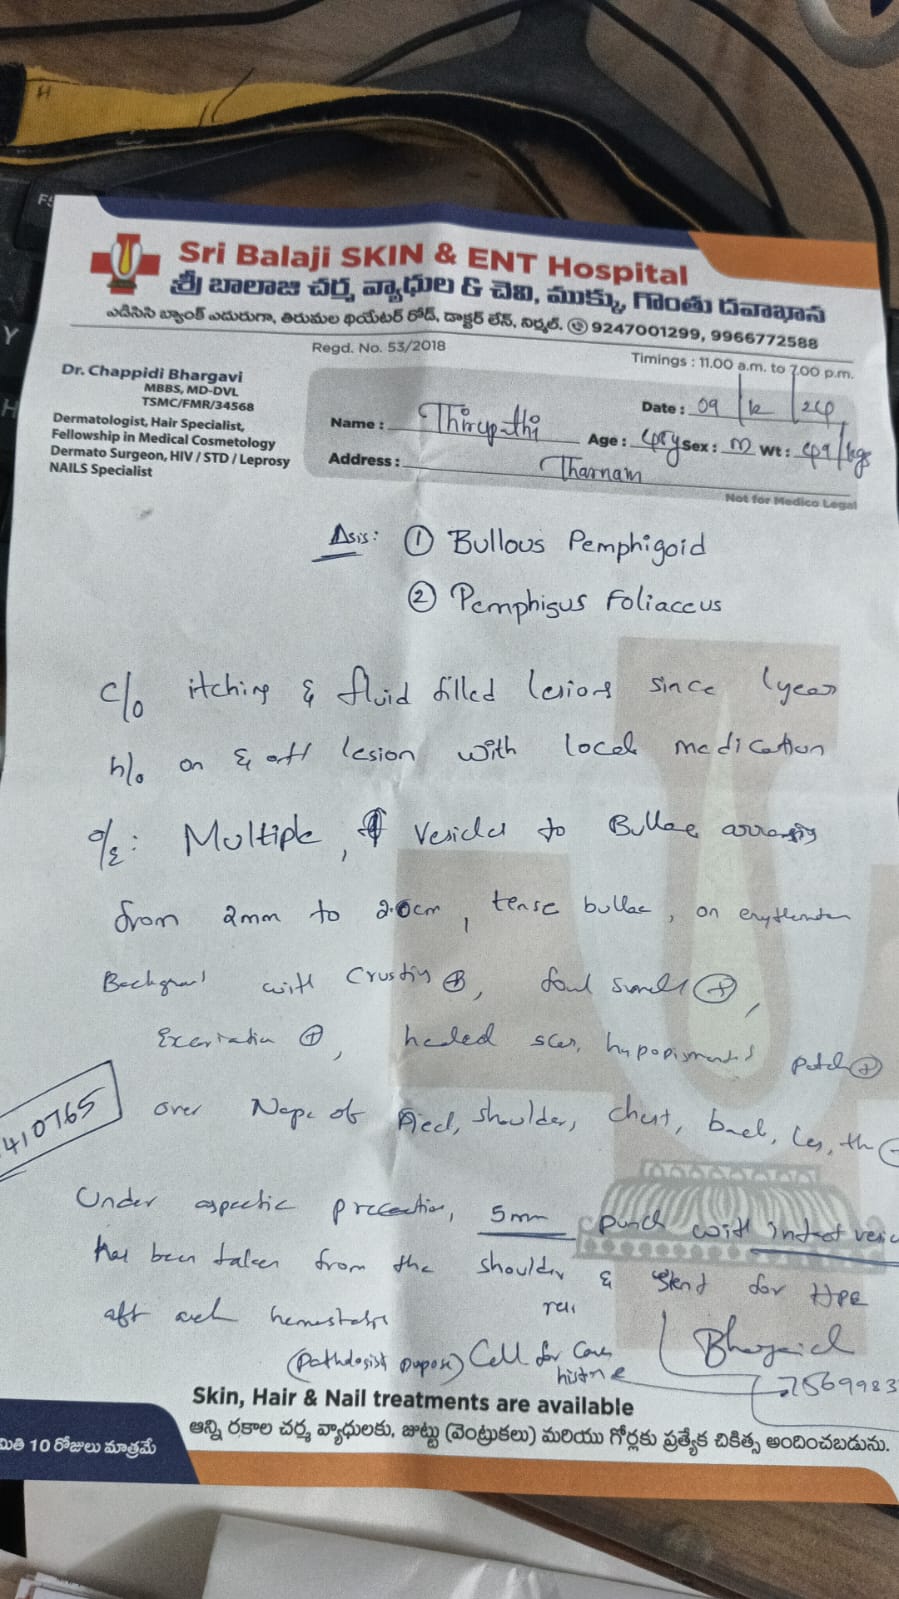 Sri Balaji SKIN & ENT Hospital
శ్రీ బాలాజి చర్మ వ్యాధుల & చెవి, ముక్కు, గొంతు దవాఖాన
ఎడిసిసి బ్యాంక్ ఎదురుగా, తిరుమల థియేటర్ రోడ్, డాక్టర్ లేన్, నిర్మల్. 9247001299, 9966772588
Regd. No. 53/2018
Timings : 11.00 a.m. to 7.00 p.m.
Dr. Chappidi Bhargavi
MBBS, MD-DVL
TSMC/FMR/34568
Dermatologist, Hair Specialist,
Fellowship in Medical Cosmetology
Dermato Surgeon, HIV / STD / Leprosy
NAILS Specialist
Date : 09
Name : Thirupathi Age : Sex : M Wt : kgs
Address : Tharnam
Not for Medico Legal
① Bullous Pemphigoid
② Pemphigus Foliaceus
c/o itching & fluid filled lesions since 1year
h/o on & off lesion with local medication
o/E: Multiple, vesicles to Bullae
from 2mm to 2.0cm, tense bullae, on
Background with Crusting ⊕, foul smell ⊕,
Excoriation ⊕, healed scar, hypopigmented patch ⊕
410765
over Nape of shoulder, chest, back,
Under aspectic precaution, 5mm punch with intact
has been taken from the shoulder & send for HPE
hemostasis
(Pathologist purpose) Call for
Skin, Hair & Nail treatments are available
అన్ని రకాల చర్మ వ్యాధులకు, జుట్టు (వెంట్రుకలు) మరియు గోర్లకు ప్రత్యేక చికిత్స అందించబడును.
మితి 10 రోజులు మాత్రమే